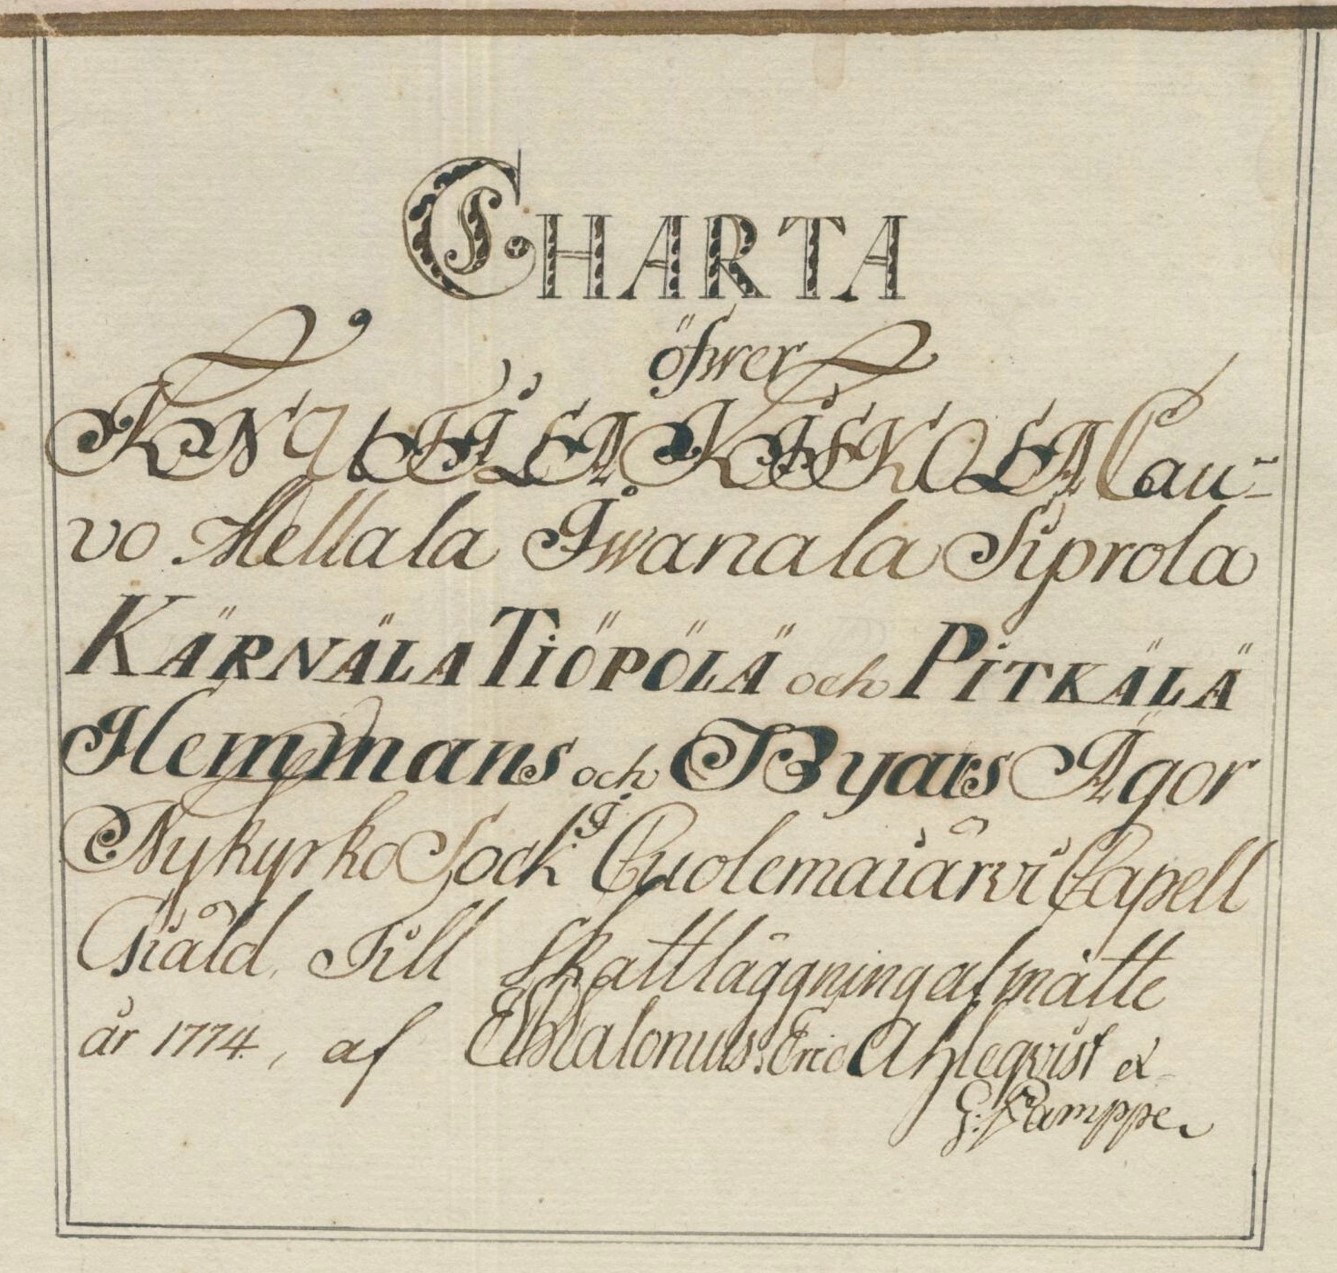 CHARTA
öfwer
KNUTILA KISKOLA Cau-
vo Mellala Iwanala Siprola
KÄRNÄLA TIÖPÖLÄ och PITKÄLÄ
Hemmans och Byars Ägor
Nykyrko Sock:ⁿ Cuolemaiärvi Capell
Giäld. Till Skattläggning afmätte
år 1774., af Malonius: Eric Ahleqvist &
G: Kamppe.